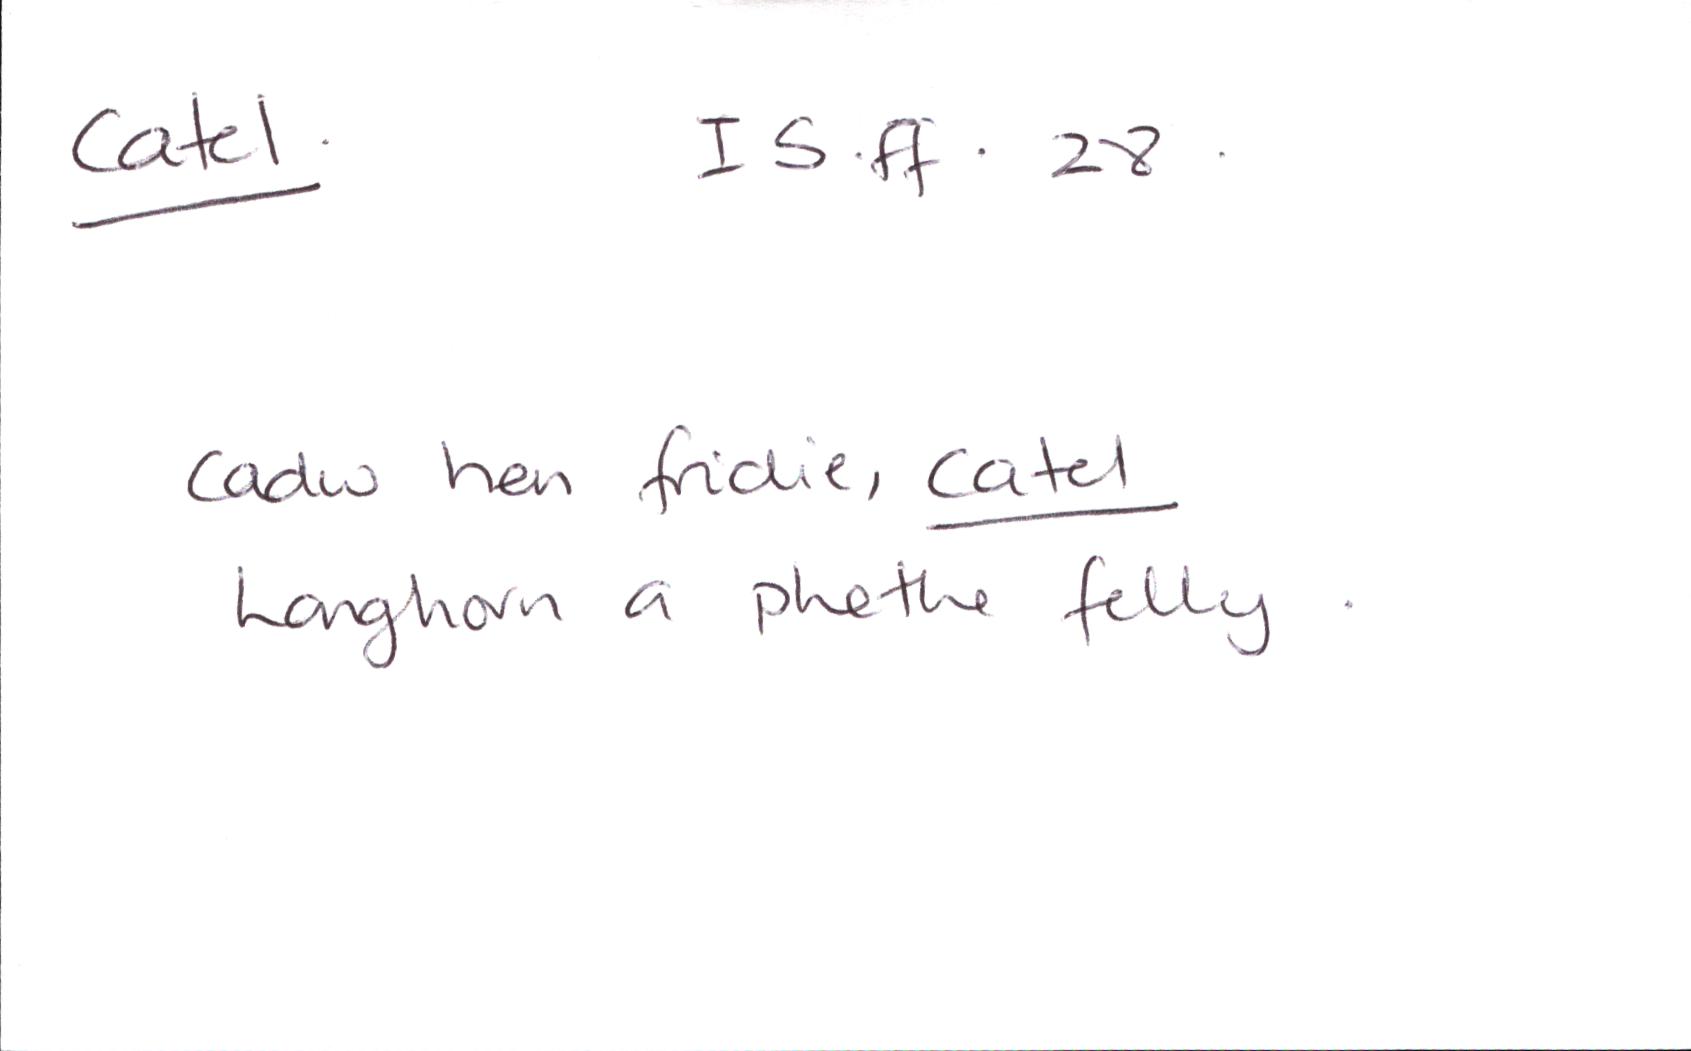 Catel. I S.ff. 28.
Cadw hen fridie, catel
Longhorn a phethe felly.